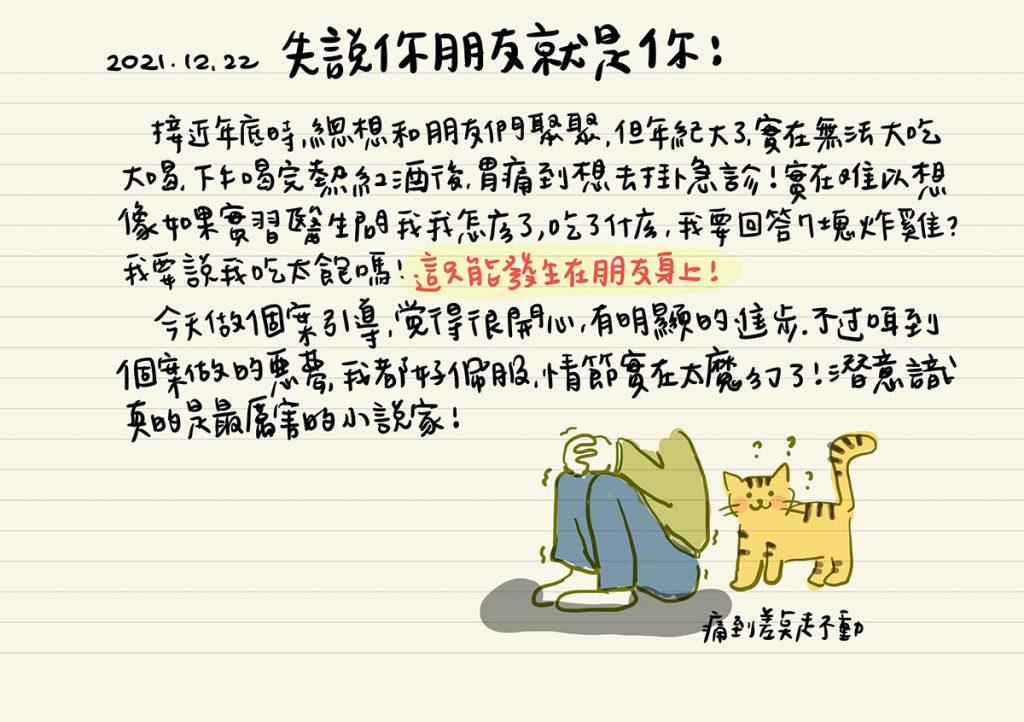 2021.12.22 失說你朋友就是你!
接近年底時,總想和朋友們聚聚,但年紀大了,實在無法大吃
大喝,下午喝完熱紅酒後,胃痛到想去掛急診!實在难以想
像如果實習醫生問我我怎麼了,吃了什麼,我要回答7塊炸雞?
我要說我吃太飽嗎!這只能發生在朋友身上!
今天做個案引導,覚得很開心,有明顯的進步.不过听到
個案做的惡夢,我都好佩服,情節實在太魔幻了!潛意識
真的是最厲害的小說家!
痛到差點走不動